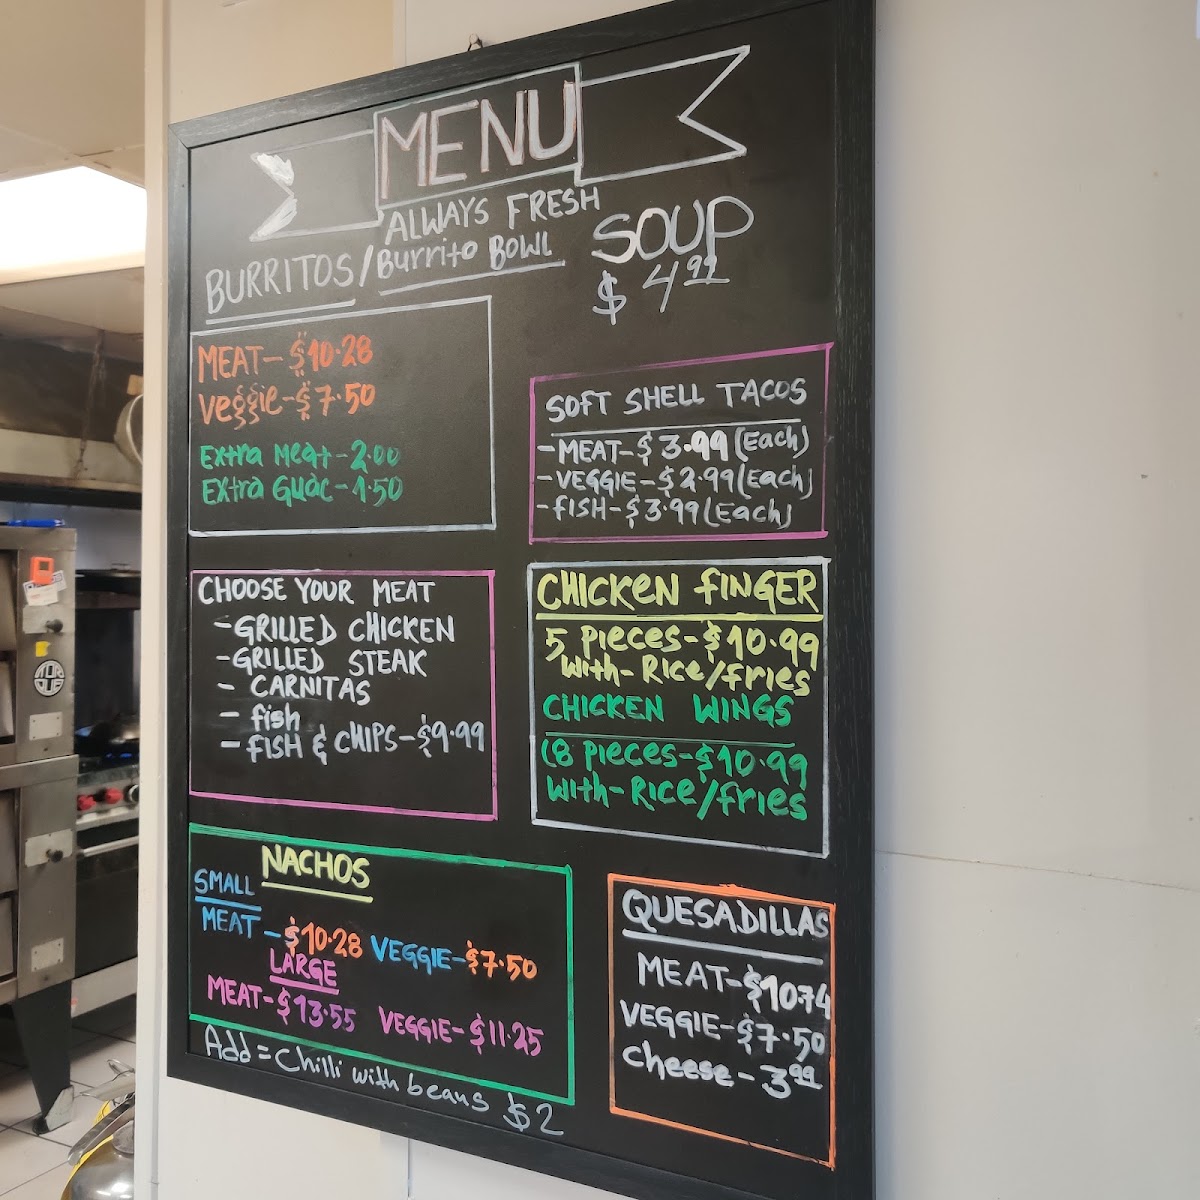 MENU
ALWAYS FRESH
BURRITOS/Burrito BOWL
SOUP
$4.99
MEAT-$10.28
Veggie-$7.50
Extra Meat-2.00
Extra Guac-1.50
SOFT SHELL TACOS
-MEAT-$3.99(Each)
-VEGGIE-$2.99(Each)
-fISH-$3.99(Each)
CHOOSE YOUR MEAT
-GRILLED CHICKEN
-GRILLED STEAK
- CARNITAS
- fish
- fISH & CHIPS-$9.99
CHICKEN fINGER
5 PIeces-$10.99
With-Rice/fries
CHICKEN WINGS
(8 PIeces-$10.99
With-Rice/fries
NACHOS
SMALL
MEAT-$10.28 VEGGIE-$7.50
LARGE
MEAT-$13.55 VEGGIE-$11.25
Add=Chilli with beans $2
QUESADILLAS
MEAT-$10.74
VEGGIE-$7.50
cheese-3.99